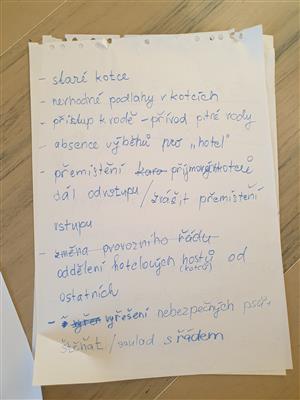 - staré kotce
- nevhodné podlahy v kotcích
- přístup k vodě - přívod pitné vody
- absence výběhů pro "hotel"
- přemístění příjmových kotců
dál od vstupu / zvážit přemístění
vstupu
- změna provozního řádu
oddělení hotelových hostů od
(kotců)
ostatních
- vyřešení nebezpečných psů +
štěňat / soulad s řádem